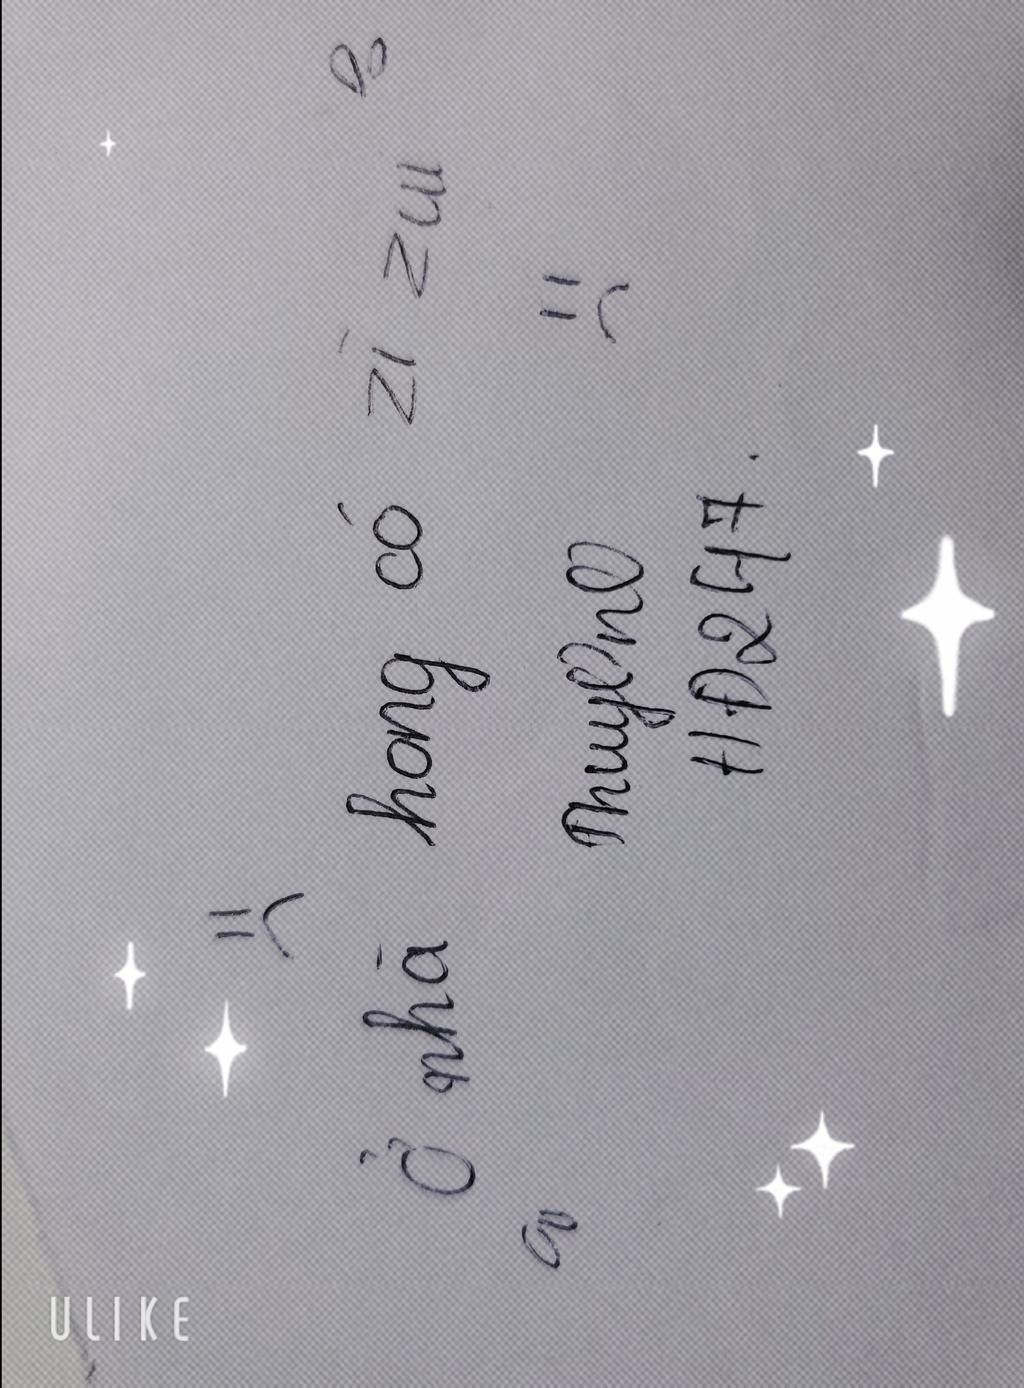 =)
Ở nhà hong có zì zui
=(
Thuyềnn
HD247.
ULIKE